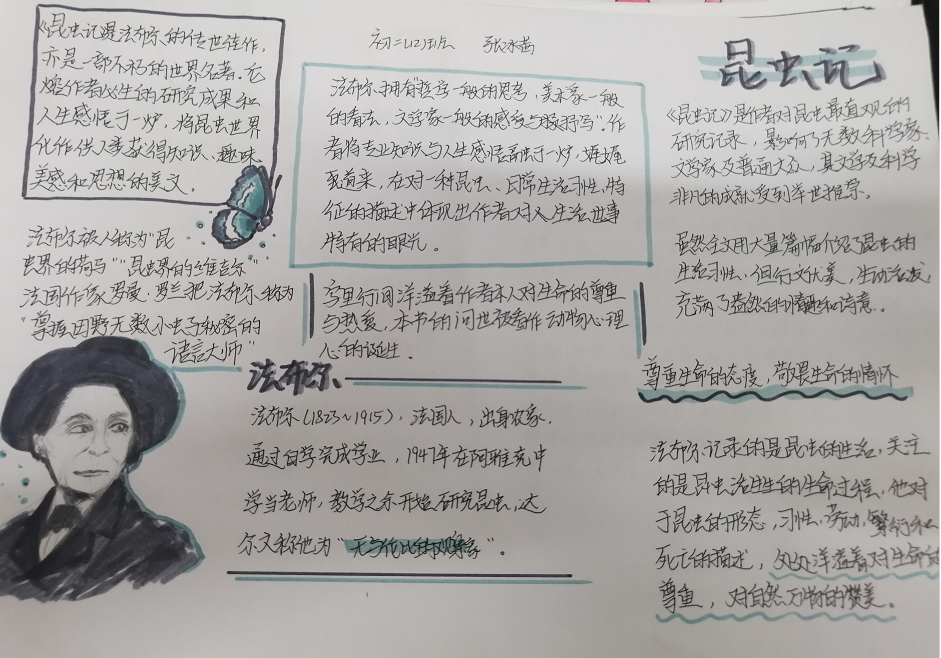 初二(2)班 张冰茜
昆虫记
《昆虫记》是法布尔的传世佳作,
亦是一部不朽的世界名著.它
熔作者毕生的研究成果和
人生感悟于一炉,将昆虫世界
化作供人类获得知识、趣味
美感和思想的美文.
法布尔被人称为"昆
虫界的荷马""昆虫界的维吉尔"
法国作家罗曼·罗兰把法布尔称为
"掌握田野无数小虫子秘密的
语言大师"
法布尔拥有"哲学家一般的思考,美术家一般
的看法,文学家一般的感受与抒写".作
者将专业知识与人生感悟融于一炉,娓娓
道来,在对一种昆虫、日常生活习性,特
征的描述中体现出作者对人生活世事
特有的眼光.
字里行间洋溢着作者本人对生命的尊重
与热爱,本书的问世被看作动物心理
的诞生.
法布尔、
法布尔(1823~1915),法国人,出身农家,
通过自学完成学业,1947年在阿雅克中
学当老师,教学之余开始研究昆虫,达
尔文称他为"无与伦比的观察家"。
《昆虫记》是作者对昆虫最直观的
研究记录,影响了无数科学家、
文学家及普通大众,其文学及科学
非凡的成就受到举世推崇.
虽然全文用大量篇幅介绍了昆虫的
生活习性,但行文优美,生动活泼,
充满了盎然的情趣和诗意.
尊重生命的态度,敬畏生命的情怀
法布尔记录的是昆虫的生活,关注
的是昆虫活生生的生命过程,他对
于昆虫的形态,习性,劳动,繁衍和
死亡的描述,处处洋溢着对生命的
尊重,对自然万物的赞美。